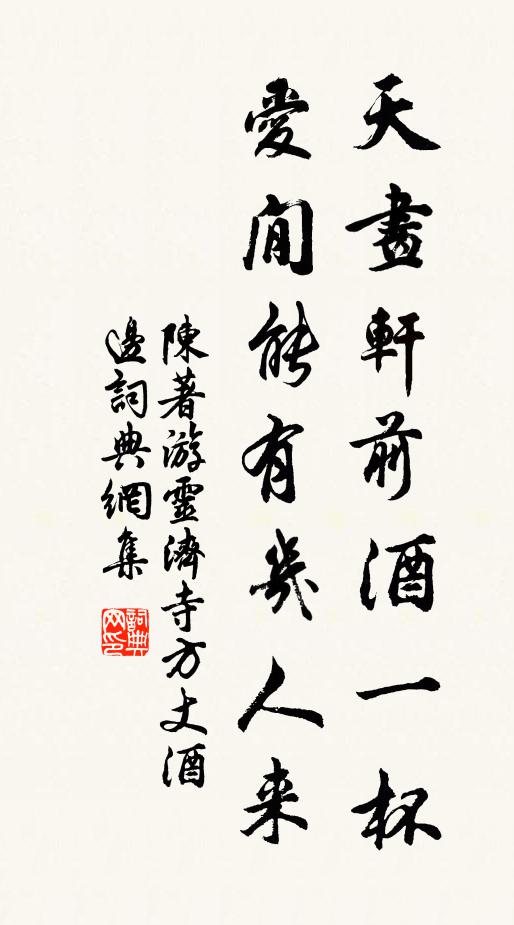 天畫軒前酒一杯
愛閒能有幾人来
陳著游靈濟寺方丈酒
邊詞典網集
詞典
网印